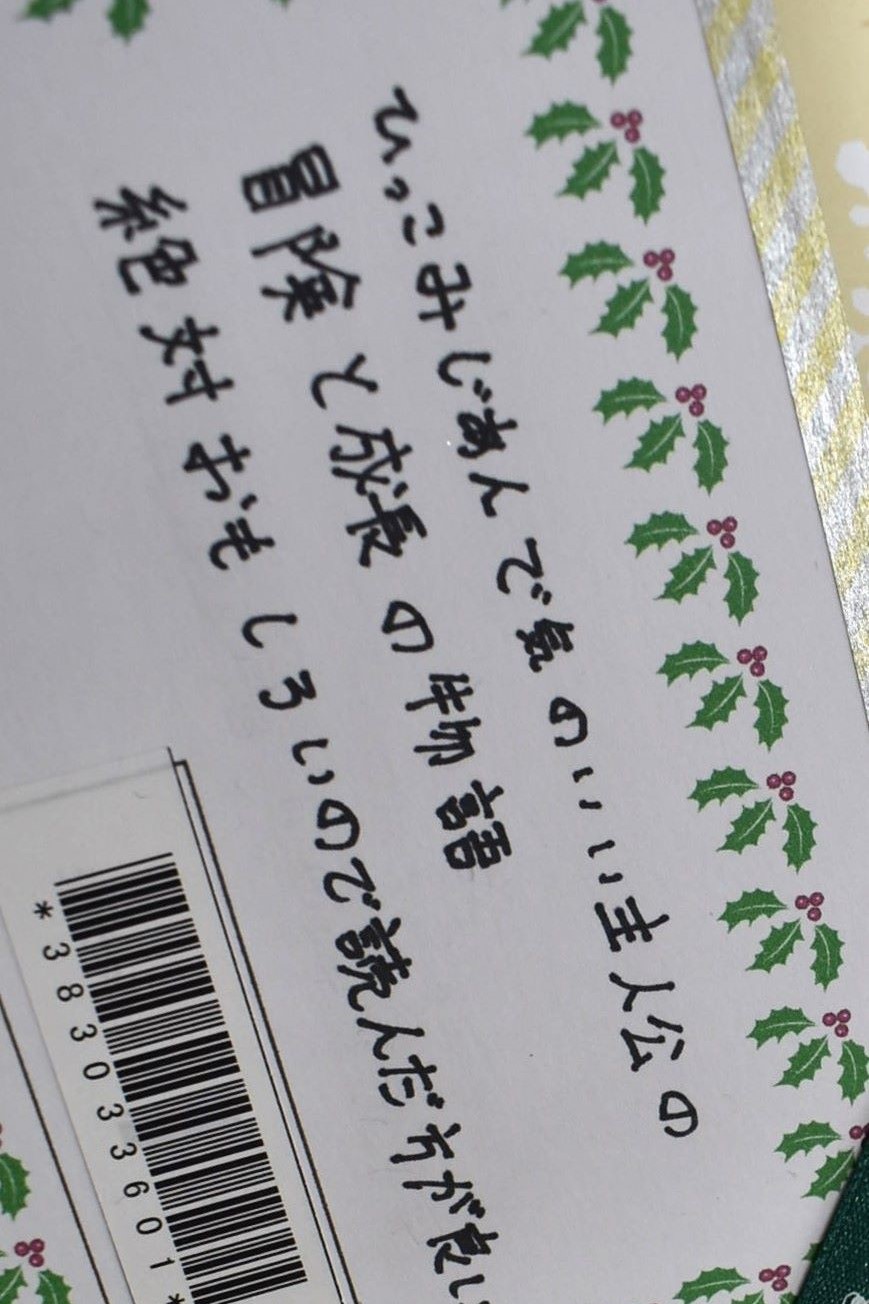 ひっこみじあんで気のいい主人公の
冒険と成長の物語
絶対おもしろいので読んだ方が良い
*383033601*